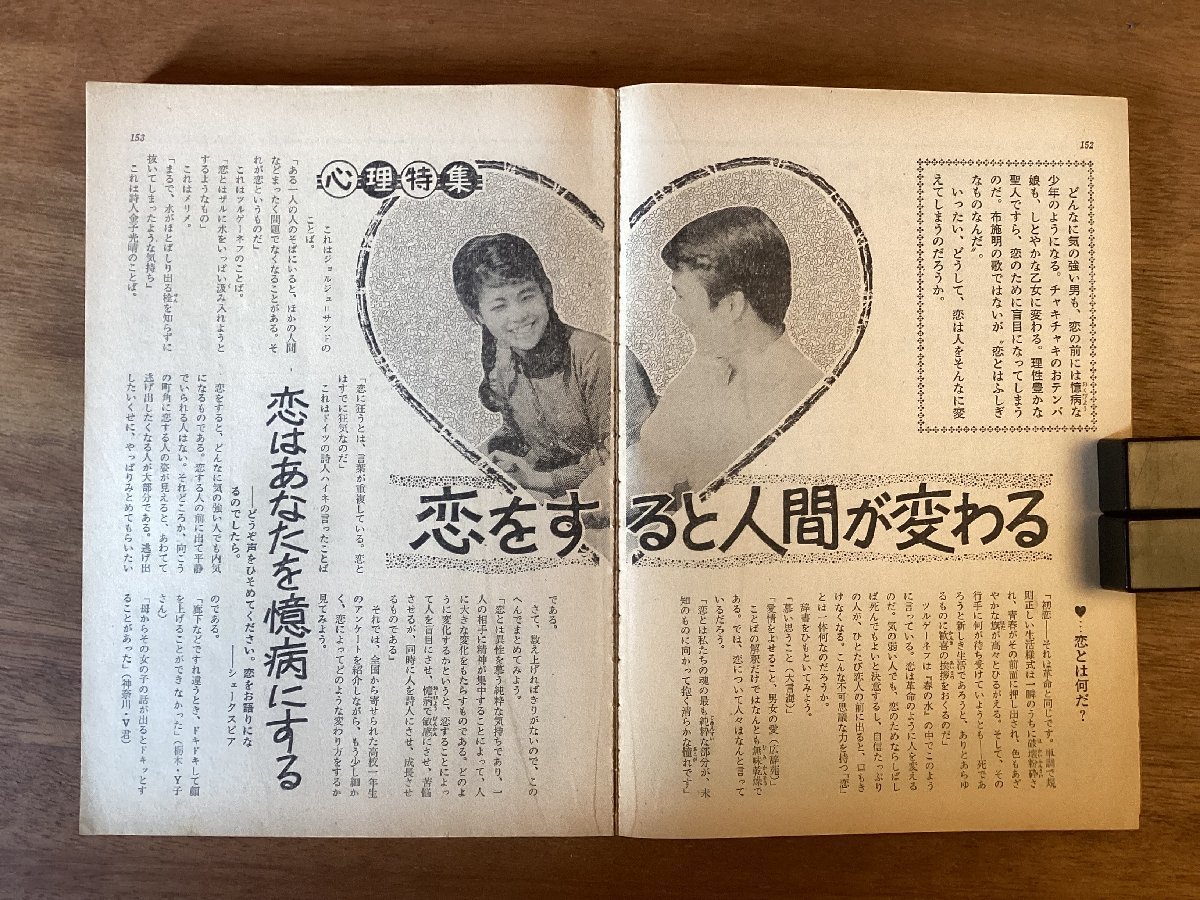 152
どんなに気の強い男も、恋の前には憶病な
少年のようになる。チャキチャキのおテンバ
娘も、しとやかな乙女に変わる。理性豊かな
聖人ですら、恋のために盲目になってしまう
のだ。布施明の歌ではないが〝恋とはふしぎ
なものなんだ〟。
いったい、どうして、恋は人をそんなに変
えてしまうのだろうか。
心理特集
恋をすると人間が変わる
♥…恋とは何だ?
「初恋――それは革命と同じです。単調で規
則正しい生活様式は一瞬のうちに破壊粉砕さ
れ、青春がその前面に押し出され、色もあざ
やかな旗が高々とひるがえる。そして、その
行手に何が待ち受けていようとも――死であ
ろうと新しき生活であろうと、ありとあらゆ
るものに歓喜の挨拶をおくるのだ」
ツルゲーネフは『春の水』の中でこのよう
に言っている。恋は革命のように人を変える
のだ。気の弱い人でも、恋のためならしばし
ば死んでもよいと決意するし、自信たっぷり
の人が、ひとたび恋人の前に出ると、口もき
けなくなる。こんな不可思議な力を持つ「恋」
とは一体何なのだろうか。
辞書をひもといてみよう。
「慕い思うこと」(大言海)
「愛情をよせること、男女の愛」(広辞苑)
ことばの解釈だけではなんとも無味乾燥で
ある。では、恋について人々はなんと言って
いるだろう。
「恋とは私たちの魂の最も純粋な部分が、未
知のものに向かって抱く清らかな憧れです」
153
これはジョルジュ=サンドの
ことば。
「ある一人の人のそばにいると、ほかの人間
などまったく問題でなくなることがある。そ
れが恋というものだ」
これはツルゲーネフのことば。
「恋とはザルに水をいっぱい汲み入れようと
するようなもの」
これはメリメ。
「まるで、水がほとばしり出る栓を知らずに
抜いてしまったような気持ち」
これは詩人金子光晴のことば。
「恋に狂うとは、言葉が重複している。恋と
はすでに狂気なのだ」
これはドイツの詩人ハイネの言ったことば
である。
さて、数え上げればきりがないので、この
へんでまとめてみよう。
「恋とは異性を慕う純粋な気持ちであり、一
人の相手に精神が集中することによって、人
に大きな変化をもたらすものである。どのよ
うに変化するかというと、恋することによっ
て人を盲目にさせ、憶病で敏感にさせ、苦悩
させるが、同時に人を詩人にさせ、成長させ
るものである」
それでは、全国から寄せられた高校一年生
のアンケートを紹介しながら、もう少し細か
く、恋によってどのような変わり方をするか
見てみよう。
恋はあなたを憶病にする
――どうぞ声をひそめてください。恋をお語りにな
るのでしたら。
――シェークスピア
恋をすると、どんなに気の強い人でも内気
になるものである。恋する人の前に出て平静
でいられる人はない。それどころか、向こう
の町角に恋する人の姿が見えると、あわてて
逃げ出したくなる人が大部分である。逃げ出
したいくせに、やっぱりみとめてもらいたい
のである。
「廊下などですれ違うとき、ドキドキして顔
を上げることができなかった」(栃木・Y子
さん)
「母からその女の子の話が出るとドキッとす
ることがあった」(神奈川・V君)